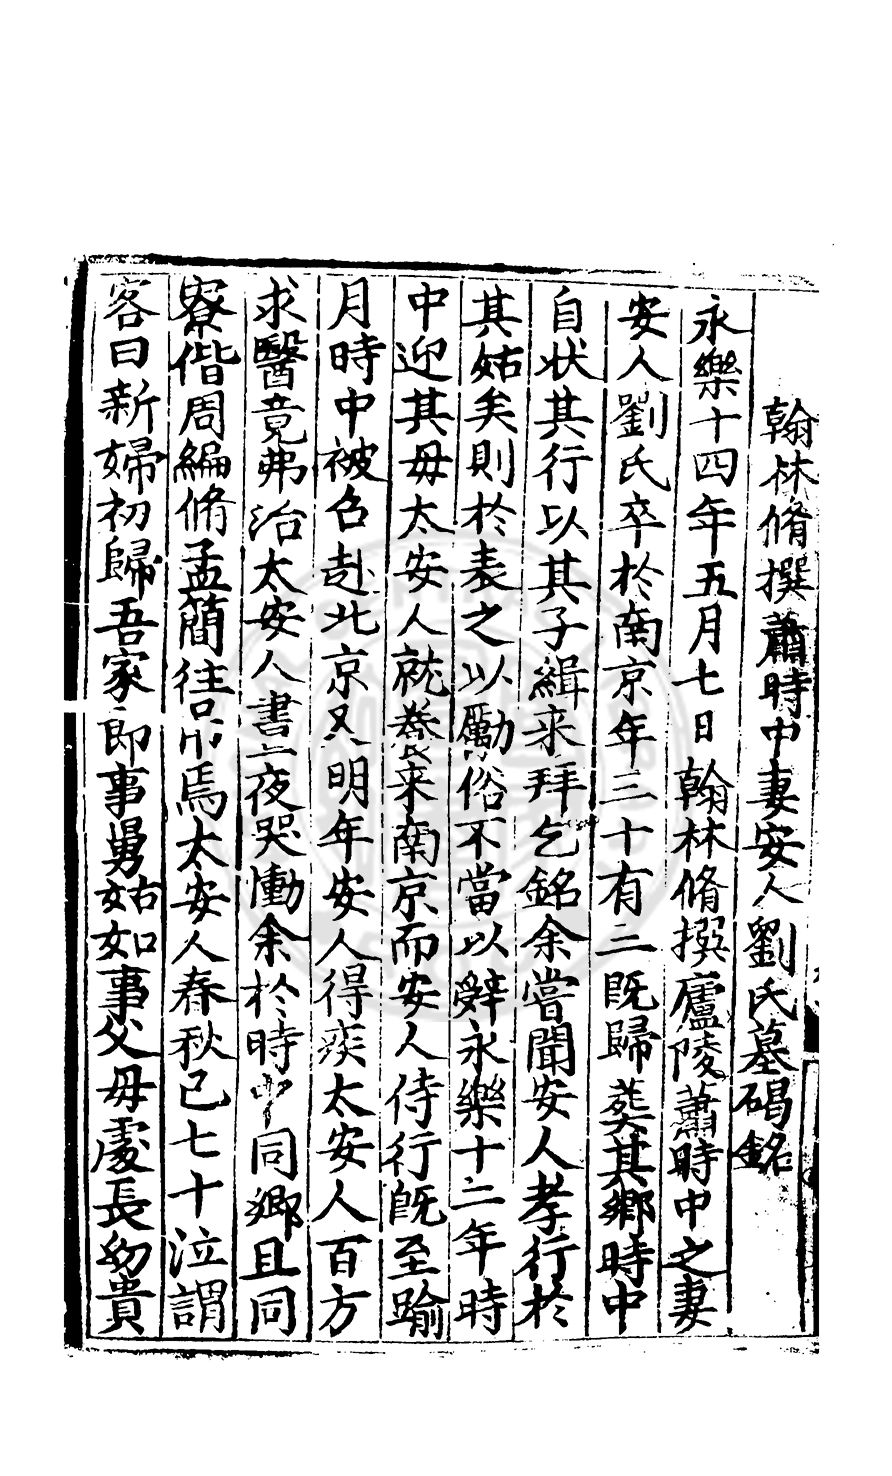 翰林脩撰蕭時中妻安人劉氏墓碣銘
永樂十四年五月七日翰林脩撰廬陵蕭時中之妻
安人劉氏卒於南京年三十有三既歸葬其鄉時中
自狀其行以其子緝来拜乞銘余嘗聞安人孝行於
其姑矣則於表之以勵俗不當以辤永樂十二年時
中迎其母太安人就養来南京而安人侍行既至踰
月時中被召赴北京又明年安人得疾太安人百方
求醫竟弗治太安人晝夜哭慟余於時中同鄉且同
寮偕周編脩孟簡往吊焉太安人春秋已七十泣謂
客曰新婦初歸吾家即事舅姑如事父母處長幼貴